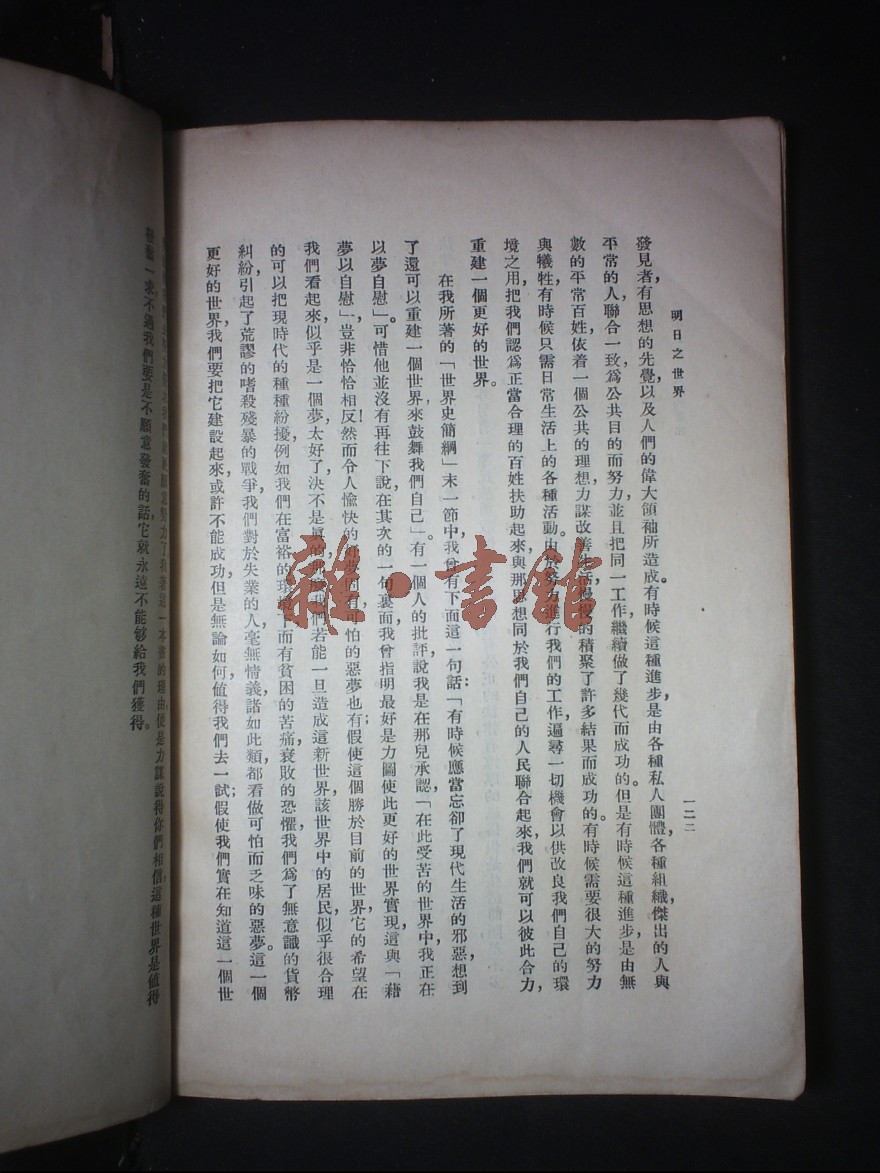 明日之世界
一二二
發見者有思想的先覺以及人們的偉大領袖所造成。有時候這種進步，是由各種私人團體，各種組織，傑出的人與
平常的人，聯合一致，爲公共目的而努力，並且把同一工作繼續做了幾代而成功的。但是有時候這種進步，是由無
數的平常百姓，依着一個公共的理想，力謀改善生活，慢慢的積聚了許多結果而成功的。有時候需要很大的努力
與犧牲，有時候只需日常生活上的各種活動。由於努力進行我們的工作，遍尋一切機會以供改良我們自己的環
境之用，把我們認爲正當合理的百姓扶助起來，與那思想同於我們自己的人民聯合起來，我們就可以彼此合力，
重建一個更好的世界。
在我所著的「世界史簡綱」末一節中，我曾有下面這一句話：「有時候應當忘卻了現代生活的邪惡，想到
了還可以重建一個世界，來鼓舞我們自己」。有一個人的批評，說我是在那兒承認，「在此受苦的世界中，我正在
以夢自慰」。可惜他並沒有再往下說，在其次的一句裏面，我曾指明最好是力圖使此更好的世界實現，這與「藉
夢以自慰」，豈非恰恰相反！然而令人愉快的好夢固有，可怕的惡夢也有；假使這個勝於目前的世界，它的希望在
我們看起來，似乎是一個夢，太好了，決不是眞的，那麽我們若能一旦造成這新世界，該世界中的居民，似乎很合理
的可以把現時代的種種紛擾，例如我們在富裕的環境下而有貧困的苦痛，衰敗的恐懼，我們爲了無意識的貨幣
糾紛，引起了荒謬的嗜殺殘暴的戰爭，我們對於失業的人，毫無情義，諸如此類，都看做可怕而乏味的惡夢。這一個
更好的世界，我們要把它建設起來，或許不能成功，但是無論如何，値得我們去一試；假使我們實在知道這一個世
努力了。我著這一本書的理由，便是力謀說得你們相信，這種世界是値得
發奮一求，不過我們要是不願意發奮的話，它就永遠不能够給我們獲得。
雜·書館